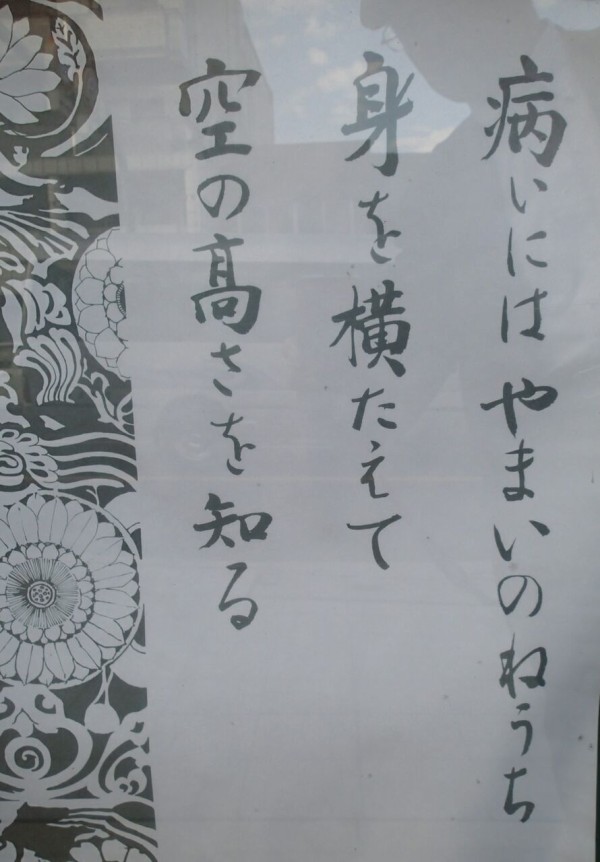 病いにはやまいのねうち
身を横たえて
空の髙さを知る